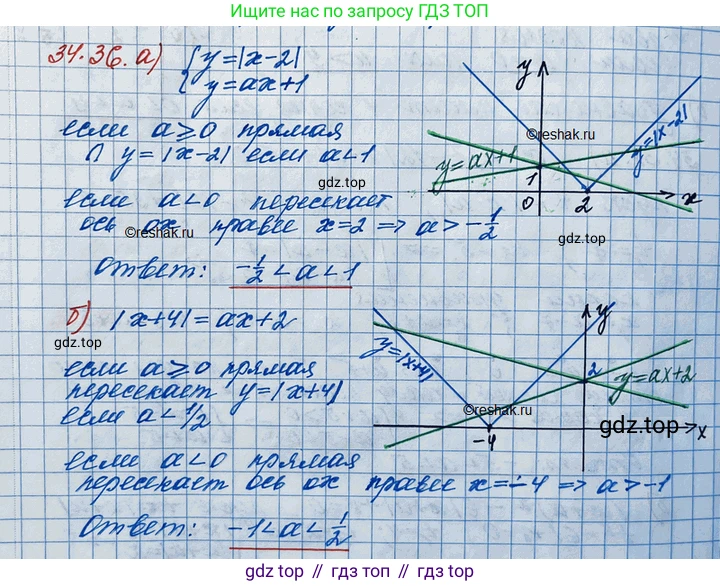 Ищите нас по запросу ГДЗ ТОП
34.36. а) { y = |x-2|
y = ax+1
если a ⩾ 0 прямая
∩ y = |x-2| если a < 1
если a < 0 пересекает
ось ox правее x=2 => a > -1/2
Ответ: -1/2 < a < 1
y
y=ax+1
y=|x-2|
1
0
2
x
©reshak.ru
gdz.top
©reshak.ru
gdz.top
б) |x+4| = ax+2
если a ⩾ 0 прямая
пересекает y=|x+4|
если a < 1/2
если a < 0 прямая
пересекает ось ox правее x=-4 => a > -1
Ответ: -1 < a < 1/2
y
y=|x+4|
2
y=ax+2
-4
x
gdz.top
©reshak.ru
gdz.top
gdz.top // гдз топ // gdz.top